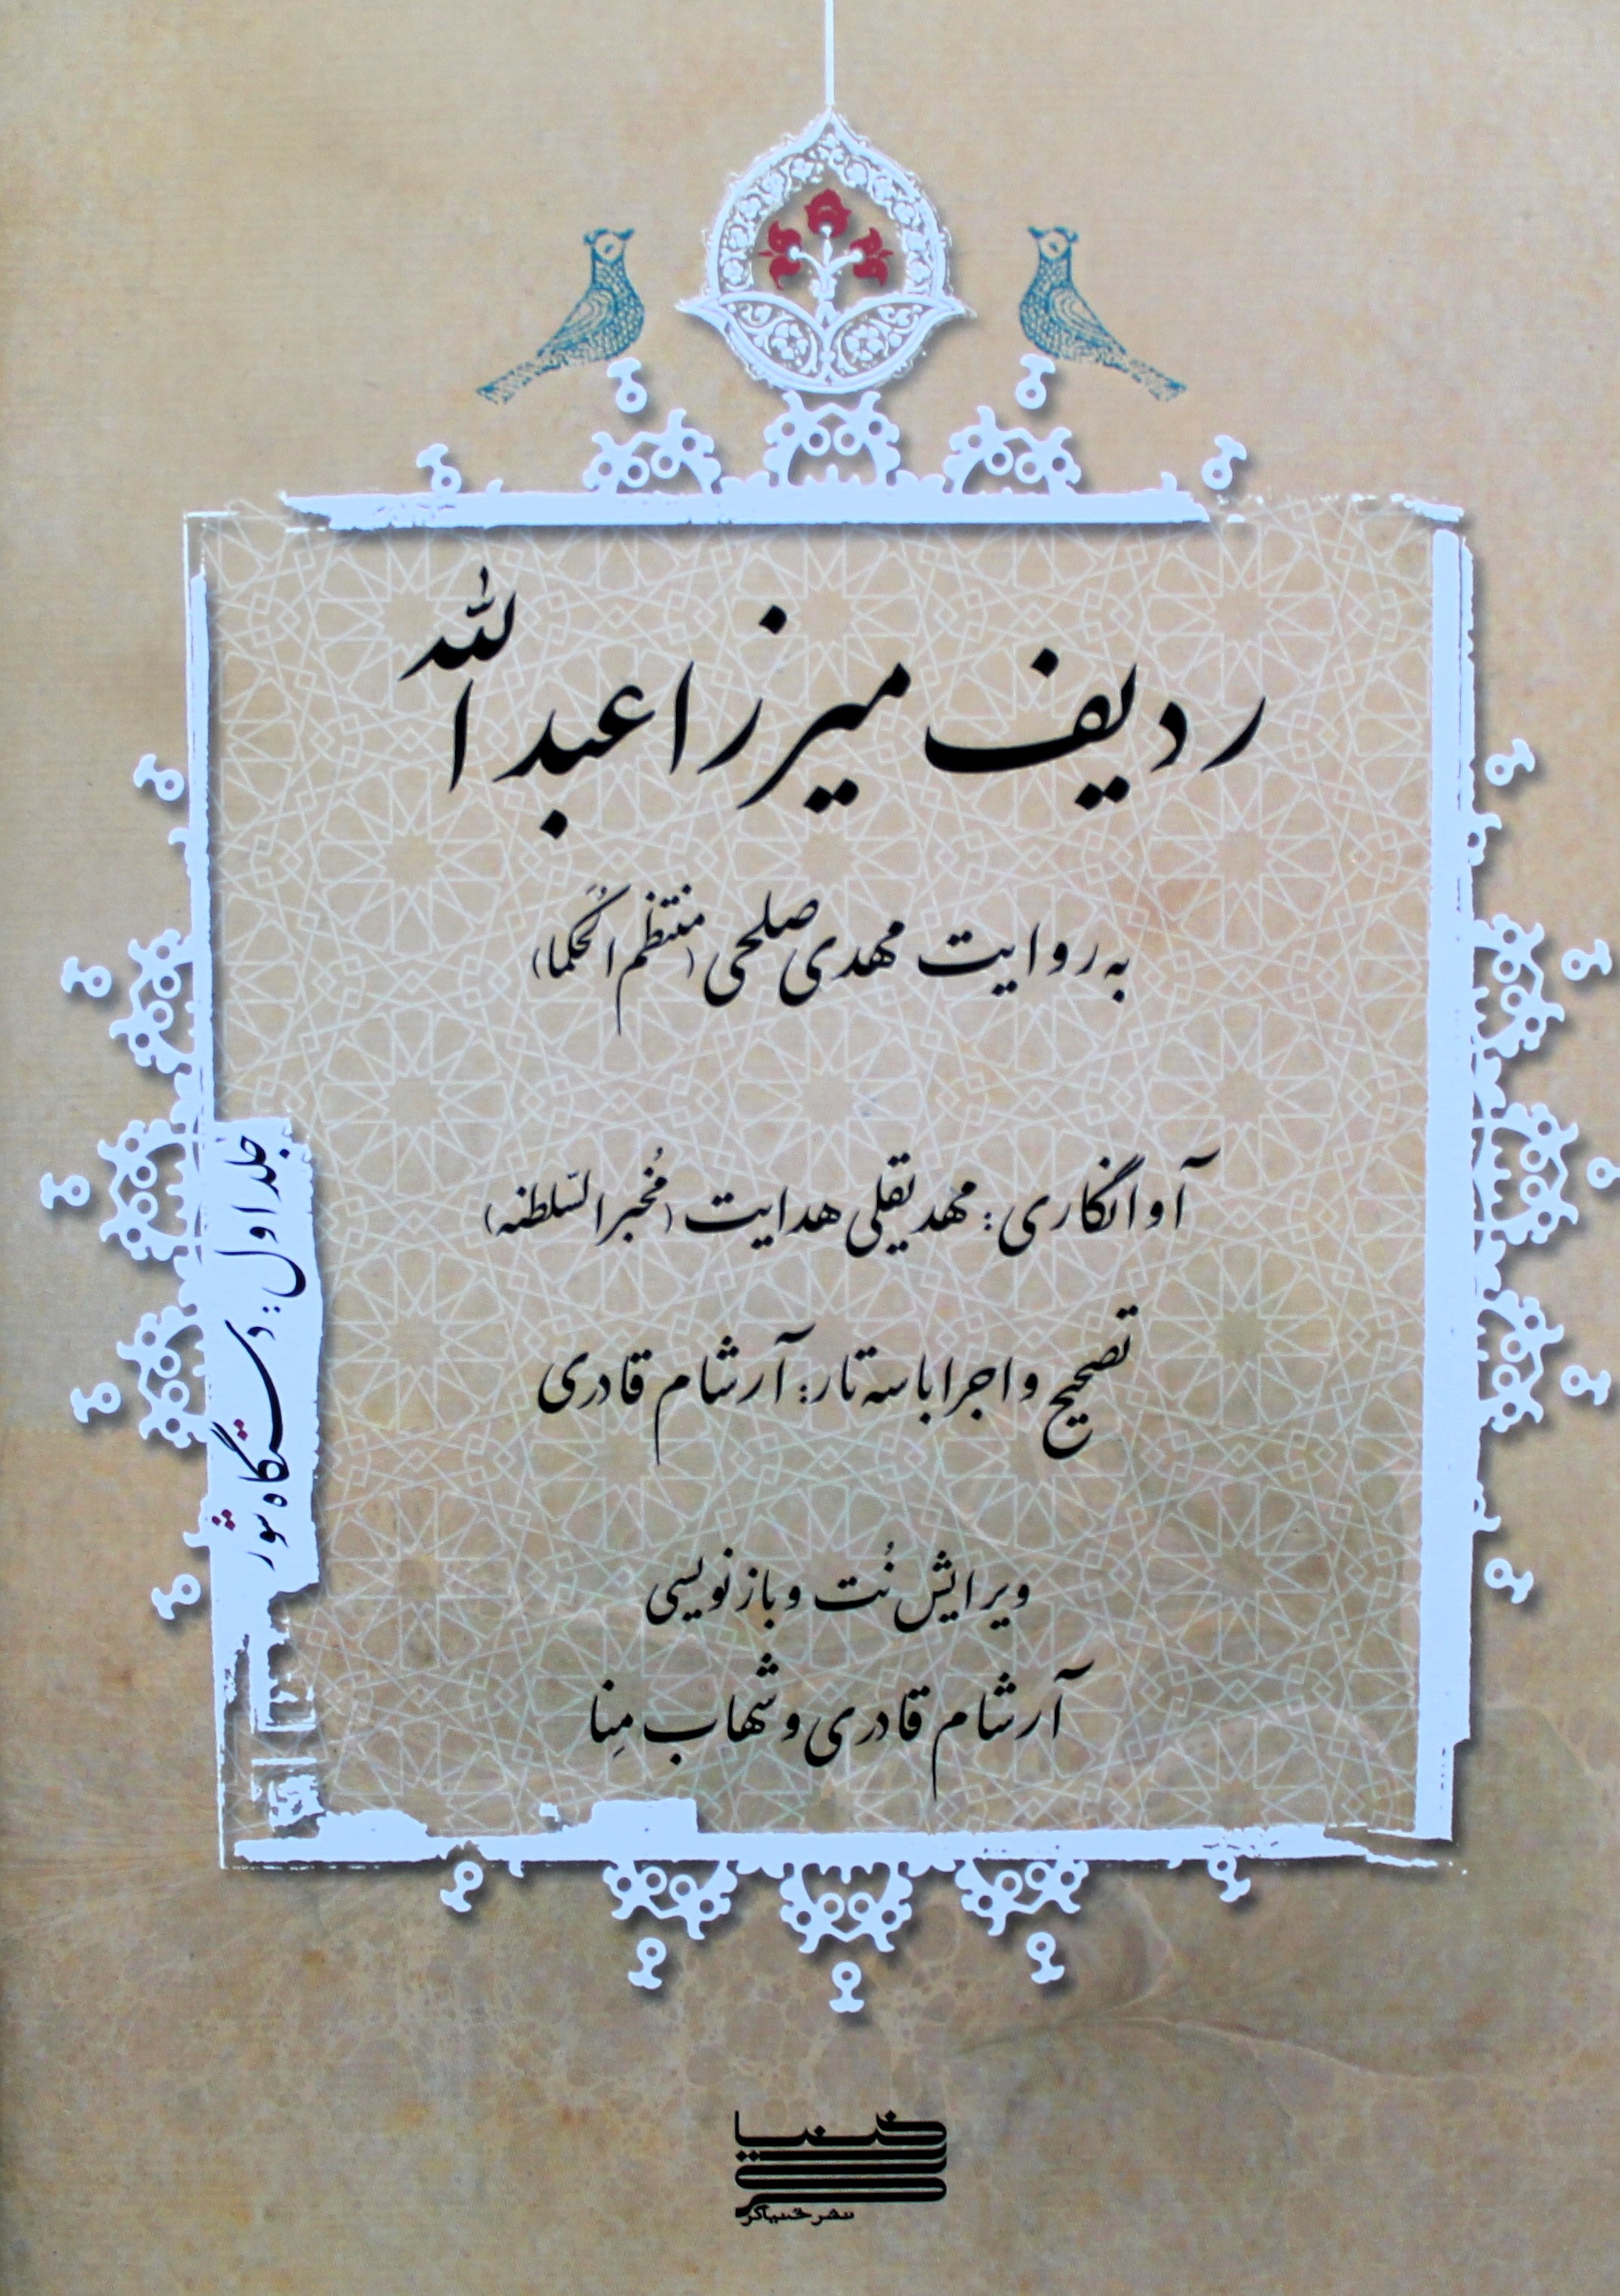 ردیف میرزا عبدالله
به روایت مهدی صلحی (منتظم الحُکَما)
آوانگاری: مهدیقلی هدایت (مُخبرالسّلطنه)
تصحیح و اجرا با سه تار: آرشام قادری
ویرایش نُت و بازنویسی
آرشام قادری و شهاب مِنا
جلد اول: دستگاه شور
خنیاگر
نشر خنیاگر